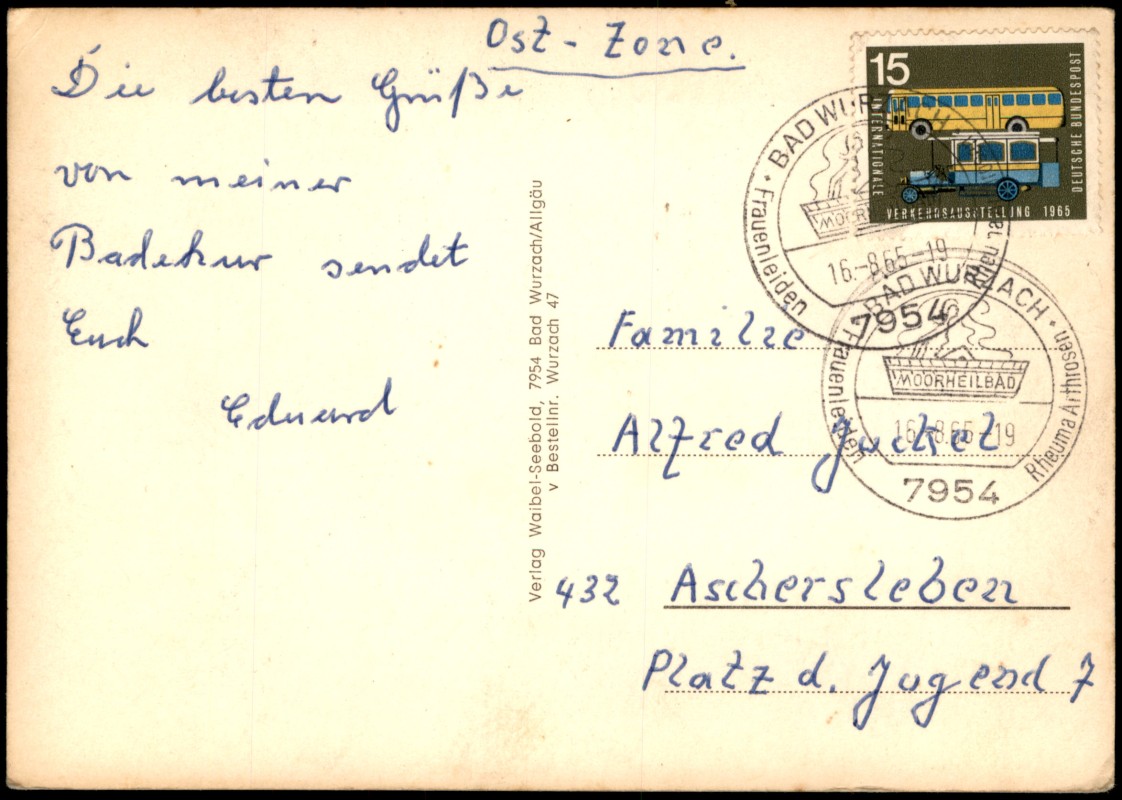 Ost-Zone.
Die besten Grüße
von meiner
Badekur sendet
Euch
Eduard
Verlag Waibel-Seebold, 7954 Bad Wurzach/Allgäu
v Bestellnr. Wurzach 47
15
INTERNATIONALE
VERKEHRSAUSSTELLUNG 1965
DEUTSCHE BUNDESPOST
BAD WURZACH
Frauenleiden
MOORHEILBAD
16.-8.65-19
7954
BAD WURZACH
Frauenleiden
Rheuma Arthrosen
MOORHEILBAD
16.-8.65-19
7954
Familie
Alfred
432 Aschersleben
Platz d. Jugend 7